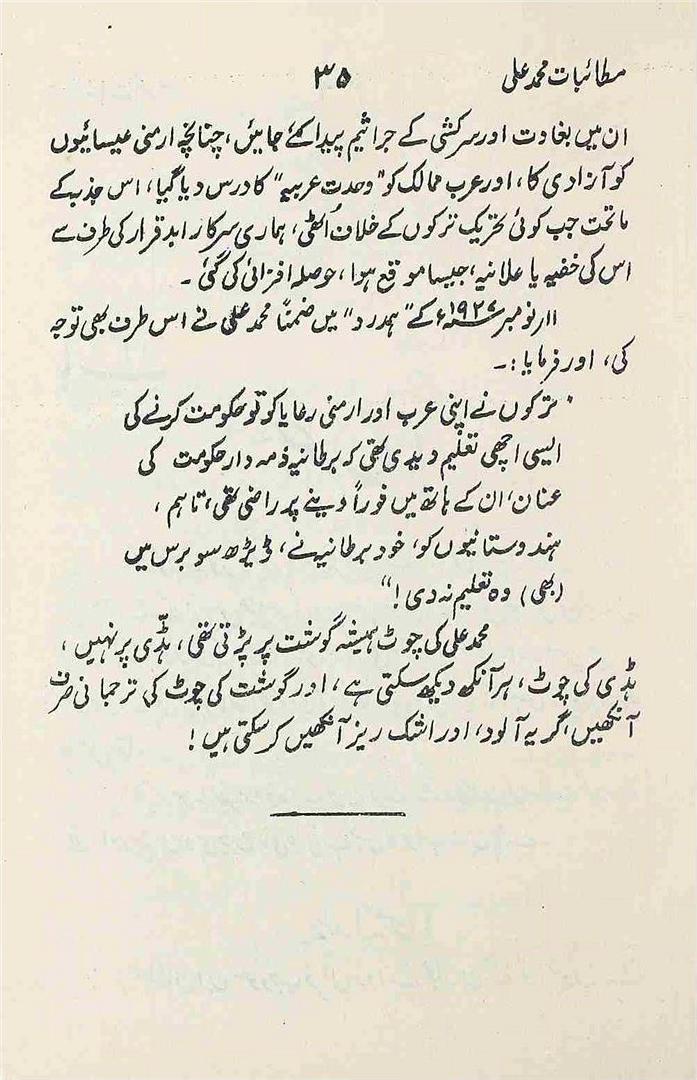 مطائبات محمد علی ۳۵
ان میں بغاوت اور سرکشی کے جراثیم پیدا کئے جائیں، چنانچہ ارمنی عیسائیوں
کو آزادی کا، اور عرب ممالک کو "وحدت عربیہ" کا درس دیا گیا، اس جذبہ کے
ماتحت جب کوئی تحریک ترکوں کے خلاف اُٹھی، ہماری سرکار ابد قرار کی طرف سے
اس کی خفیہ یا علانیہ، جیسا موقع ہوا، حوصلہ افزائی کی گئی۔
۱۱ر نومبر ۱۹۲۷ء کے "ہمدرد" میں ضمناً محمد علی نے اس طرف بھی توجہ
کی، اور فرمایا:۔
"ترکوں نے اپنی عرب اور ارمنی رعایا کو تو حکومت کرنے کی
ایسی اچھی تعلیم دیدی تھی کہ برطانیہ ذمہ دار حکومت کی
عنان، ان کے ہاتھ میں فوراً دینے پر راضی تھی، تاہم،
ہندوستانیوں کو، خود برطانیہ نے، ڈیڑھ سو برس میں
(بھی) وہ تعلیم نہ دی!"
محمد علی کی چوٹ ہمیشہ گوشت پر پڑتی تھی، ہڈّی پر نہیں،
ہڈی کی چوٹ، ہر آنکھ دیکھ سکتی ہے، اور گوشت کی چوٹ کی ترجمانی صرف
آنکھیں، گریہ آلود، اور اشک ریز آنکھیں کر سکتی ہیں!